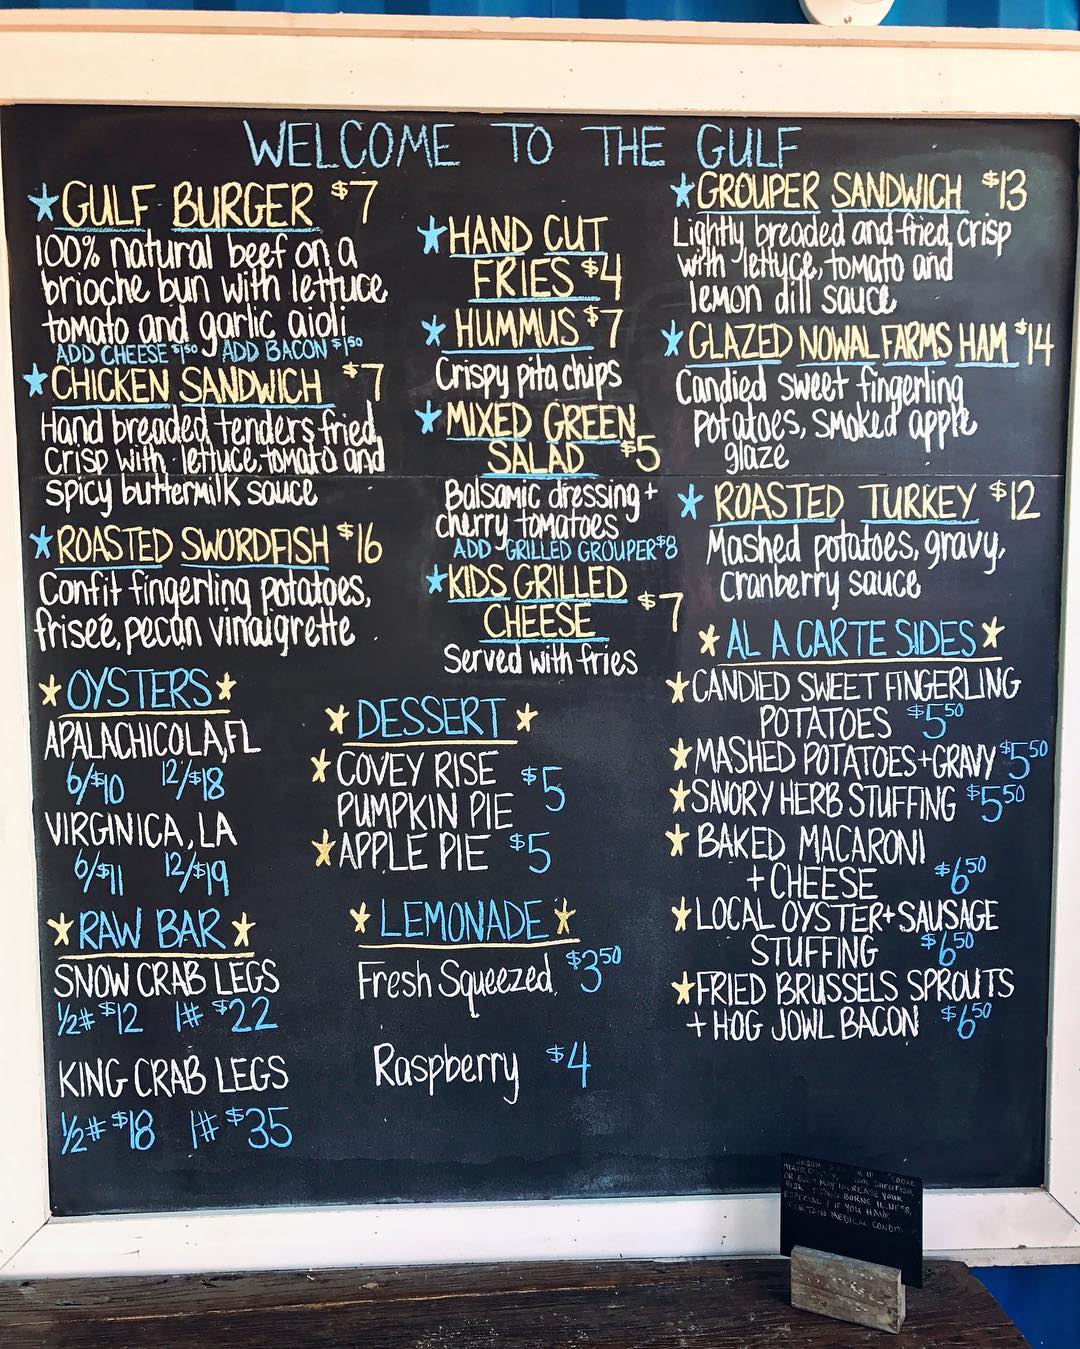 WELCOME TO THE GULF
GULF BURGER $7
100% natural beef on a
brioche bun with lettuce
tomato and garlic aioli
ADD CHEESE $1.50 ADD BACON $1.50
CHICKEN SANDWICH $7
Hand breaded tenders fried
crisp with lettuce, tomato and
spicy buttermilk sauce
ROASTED SWORDFISH $16
Confit fingerling potatoes,
frisée, pecan vinaigrette
OYSTERS
APALACHICOLA, FL
6/$10 12/$18
VIRGINICA, LA
6/$11 12/$19
RAW BAR
SNOW CRAB LEGS
1/2# $12 1# $22
KING CRAB LEGS
1/2# $18 1# $35
HAND CUT
FRIES $4
HUMMUS $7
Crispy pita chips
MIXED GREEN
SALAD $5
Balsamic dressing +
cherry tomatoes
ADD GRILLED GROUPER $8
KIDS GRILLED
CHEESE $7
Served with fries
DESSERT
COVEY RISE
PUMPKIN PIE $5
APPLE PIE $5
LEMONADE
Fresh Squeezed $3.50
Raspberry $4
GROUPER SANDWICH $13
Lightly breaded and fried crisp
with lettuce, tomato and
lemon dill sauce
GLAZED NOWAL FARMS HAM $14
Candied sweet fingerling
potatoes, smoked apple
glaze
ROASTED TURKEY $12
Mashed potatoes, gravy,
cranberry sauce
AL A CARTE SIDES
CANDIED SWEET FINGERLING
POTATOES $5.50
MASHED POTATOES + GRAVY $5.50
SAVORY HERB STUFFING $5.50
BAKED MACARONI
+ CHEESE $6.50
LOCAL OYSTER + SAUSAGE
STUFFING $6.50
FRIED BRUSSELS SPROUTS
+ HOG JOWL BACON $6.50
SHELLFISH
MAY INCREASE YOUR
BORNE
IF YOU HAVE
MEDICAL